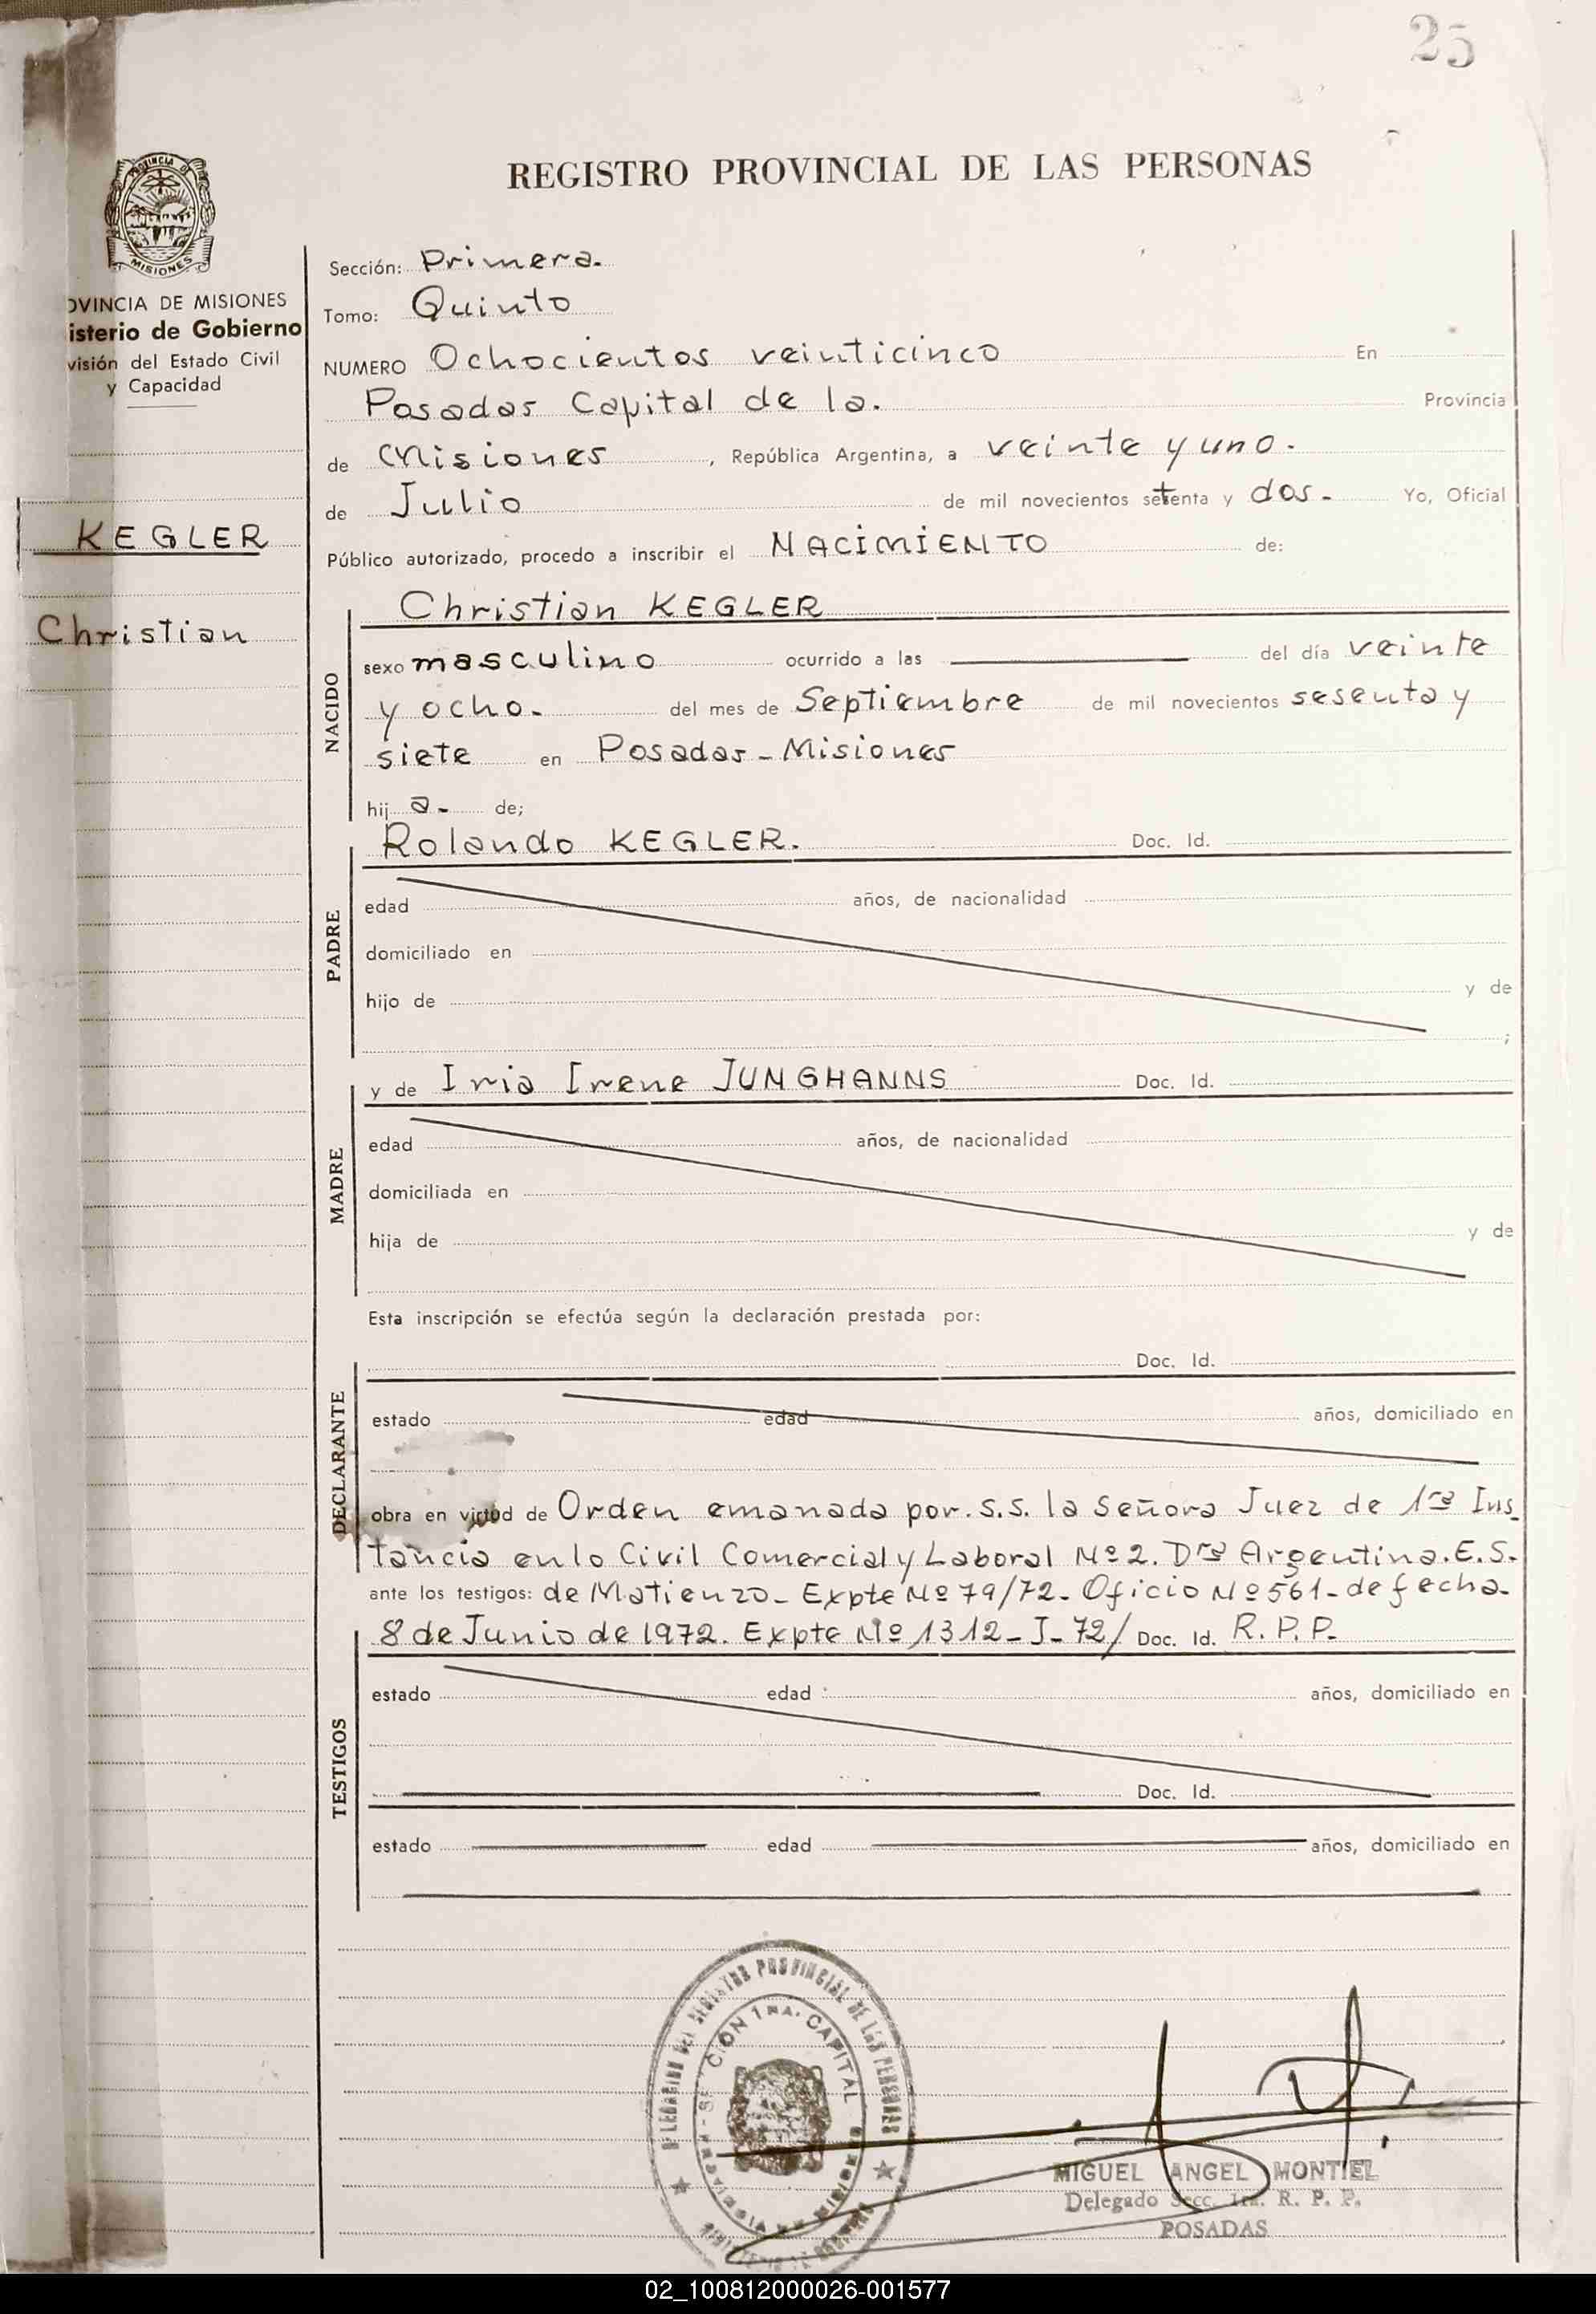 25
REGISTRO PROVINCIAL DE LAS PERSONAS
PROVINCIA DE
MISIONES
OVINCIA DE MISIONES
isterio de Gobierno
visión del Estado Civil
y Capacidad
KEGLER
Christian
Sección: Primera.
Tomo: Quinto
NUMERO Ochocientos veinticinco En
Posadas Capital de la. Provincia
de Misiones, República Argentina, a veinte y uno.
de Julio de mil novecientos setenta y dos. Yo, Oficial
Público autorizado, procedo a inscribir el NACIMIENTO de:
NACIDO
Christian KEGLER
sexo masculino ocurrido a las del día veinte
y ocho. del mes de Septiembre de mil novecientos sesenta y
siete en Posadas - Misiones
hij a. de;
PADRE
Rolando KEGLER. Doc. Id.
edad años, de nacionalidad
domiciliado en
hijo de y de
;
MADRE
y de Iria Irene JUNGHANNS Doc. Id.
edad años, de nacionalidad
domiciliada en
hija de y de
Esta inscripción se efectúa según la declaración prestada por:
DECLARANTE
Doc. Id.
estado edad años, domiciliado en
obra en virtud de Orden emanada por. S.S. la Señora Juez de 1ra Ins
tancia en lo Civil Comercial y Laboral Nº 2. Dra Argentina. E. S.
ante los testigos: de Matienzo - Expte Nº 79/72 - Oficio Nº 561 - de fecha
8 de Junio de 1972. Expte Nº 1312 - J - 72/ Doc. Id. R. P. P.
TESTIGOS
estado edad años, domiciliado en
Doc. Id.
estado edad años, domiciliado en
DEL REGISTRO PROVINCIAL DE LAS PERSONAS
SECCION 1RA. CAPITAL
MIGUEL ANGEL MONTIEL
Delegado Secc. 1ra. R. P. P.
POSADAS
02_100812000026-001577